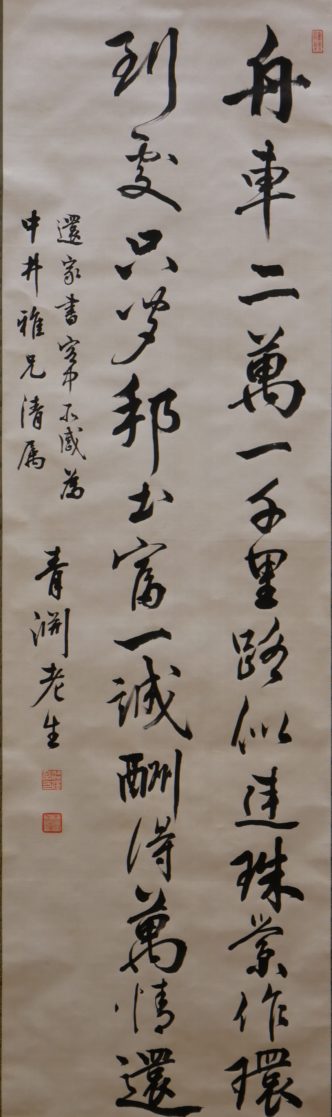 舟車二萬一千里路似連珠縈作環
到處只夸邦土富一誠酬得萬情還
還家書寄中不感為
中井雅兄清属
青渊老生